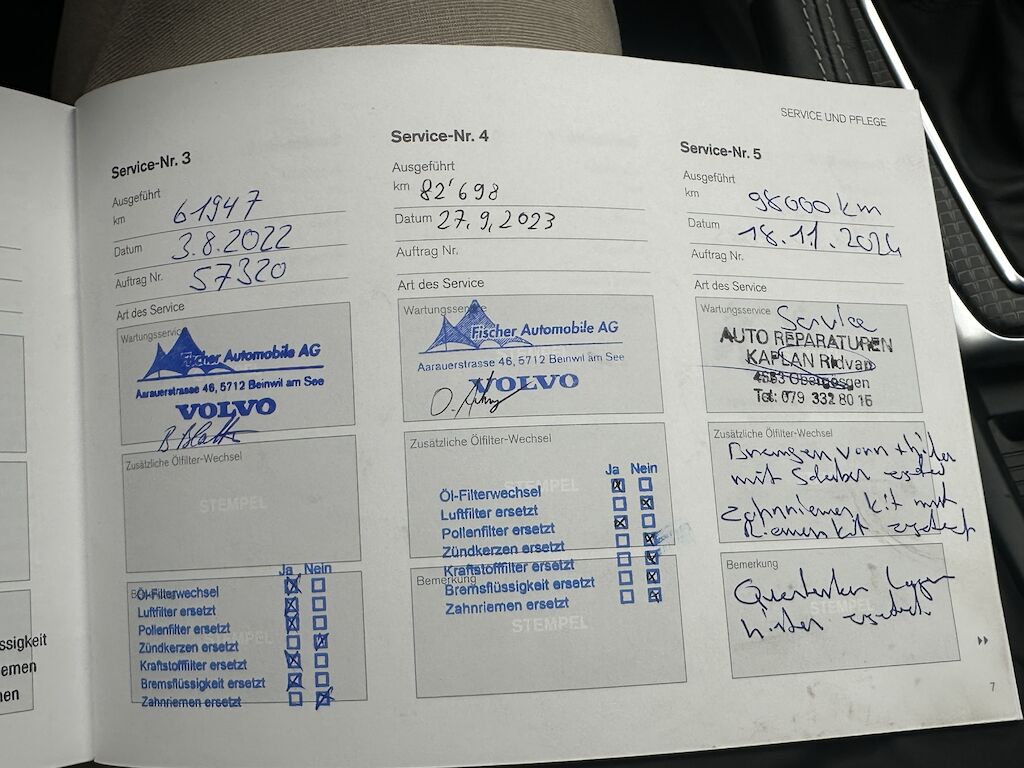 SERVICE UND PFLEGE
Service-Nr. 3
Ausgeführt
km 61947
Datum 3.8.2022
Auftrag Nr. 57320
Art des Service
Wartungsservice
Fischer Automobile AG
Aarauerstrasse 46, 5712 Beinwil am See
VOLVO
Zusätzliche Ölfilter-Wechsel
STEMPEL
Ja Nein
Öl-Filterwechsel
Luftfilter ersetzt
Pollenfilter ersetzt
Zündkerzen ersetzt
Kraftstofffilter ersetzt
Bremsflüssigkeit ersetzt
Zahnriemen ersetzt
Service-Nr. 4
Ausgeführt
km 82'698
Datum 27.9.2023
Auftrag Nr.
Art des Service
Wartungsservice
Fischer Automobile AG
Aarauerstrasse 46, 5712 Beinwil am See
VOLVO
Zusätzliche Ölfilter-Wechsel
STEMPEL
Ja Nein
Öl-Filterwechsel
Luftfilter ersetzt
Pollenfilter ersetzt
Zündkerzen ersetzt
Kraftstofffilter ersetzt
Bemerkung
Bremsflüssigkeit ersetzt
Zahnriemen ersetzt
STEMPEL
Service-Nr. 5
Ausgeführt
km 98000 km
Datum 18.11.2024
Auftrag Nr.
Art des Service
Wartungsservice
Service
AUTO REPARATUREN
KAPLAN Ridvan
Tel: 079 332 80 16
Zusätzliche Ölfilter-Wechsel
Bremsen vorn
mit
Zahnriemen kit mit
Riemen kit ersetzt
Bemerkung
STEMPEL
hinten ersetzt
7
ssigkeit
emen
nen